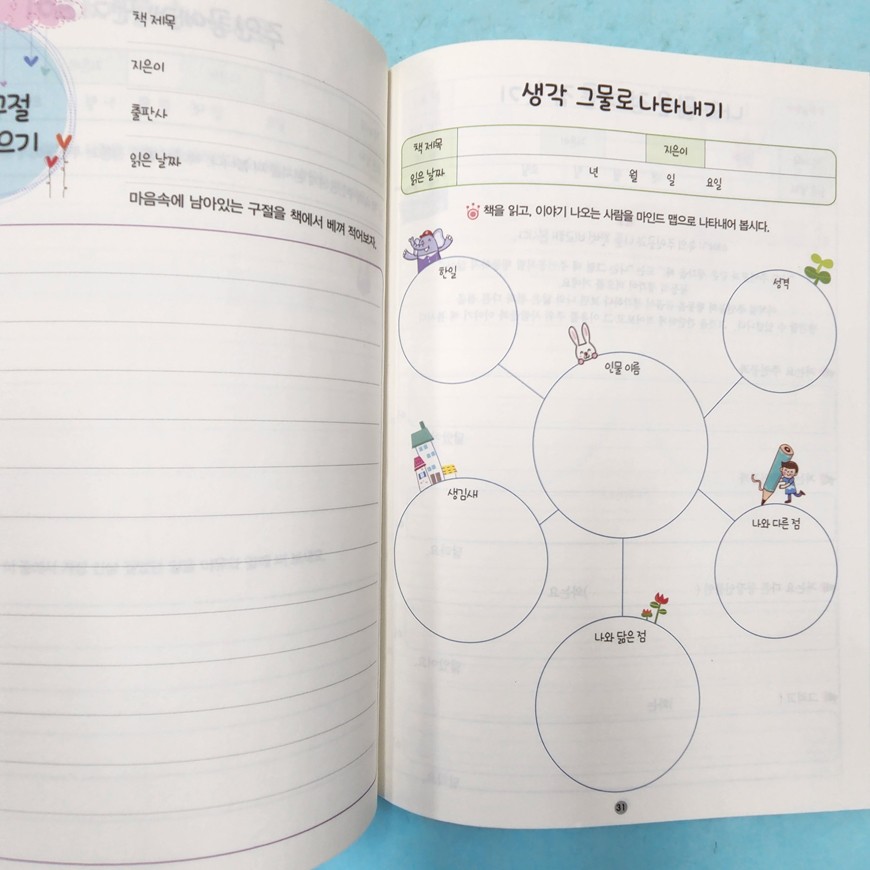 책 제목
지은이
출판사
읽은 날짜
구절
마음속에 남아있는 구절을 책에서 베껴 적어보자.
생각 그물로 나타내기
책 제목
지은이
읽은 날짜
년 월 일 요일
책을 읽고, 이야기 나오는 사람을 마인드 맵으로 나타내어 봅시다.
한일
성격
인물 이름
생김새
나와 다른 점
나와 닮은 점
31